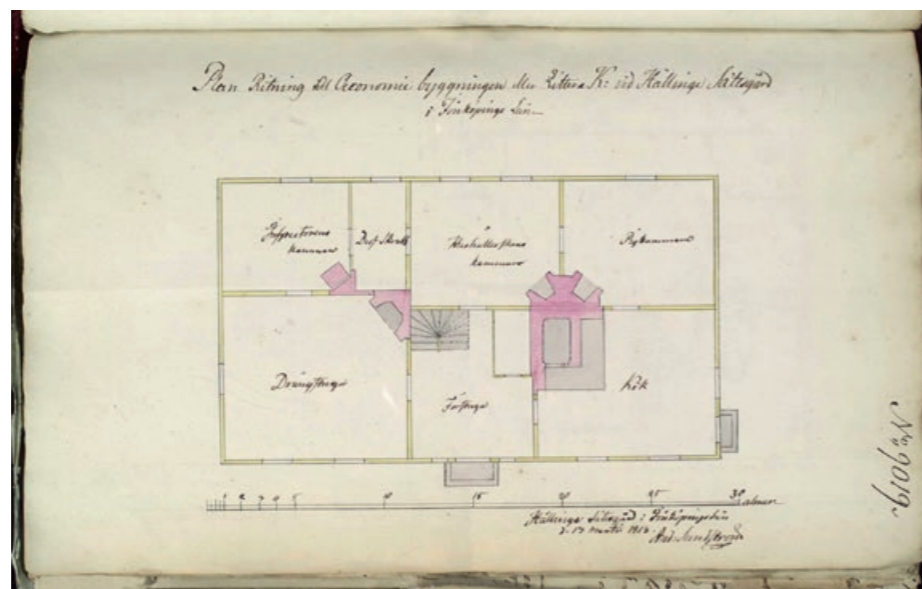 Plan Ritning till Œconomie byggningen eller Littera K: vid Hällinge Sätesgård
i Jönköpings Län
Inspectorens
kammare
Hushållerskans
kammare
Pigkammare
Drängstuga
Förstuga
Kök
1 2 3 4 5 10 15 20 25 30 alnar
Hällinge Sätesgård i Jönköpings län
And. Sundström
No 9019